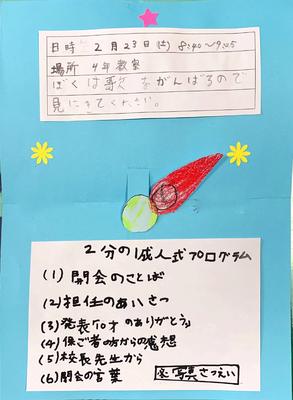 日時 2月23日(土) 8:40〜9:05
場所 4年教室
ぼくは歌をがんばるので
見にきてください。
2分の1成人式プログラム
(1) 開会のことば
(2) 担任のあいさつ
(3) 発表「10才のありがとう」
(4) 保ご者の方からの感想
(5) 校長先生から
(6) 閉会の言葉
※写真さつえい